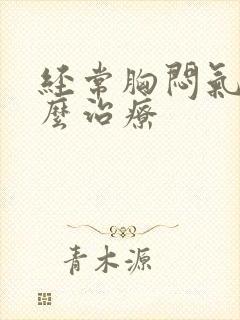 经常胸闷氣
麼治療
青木源